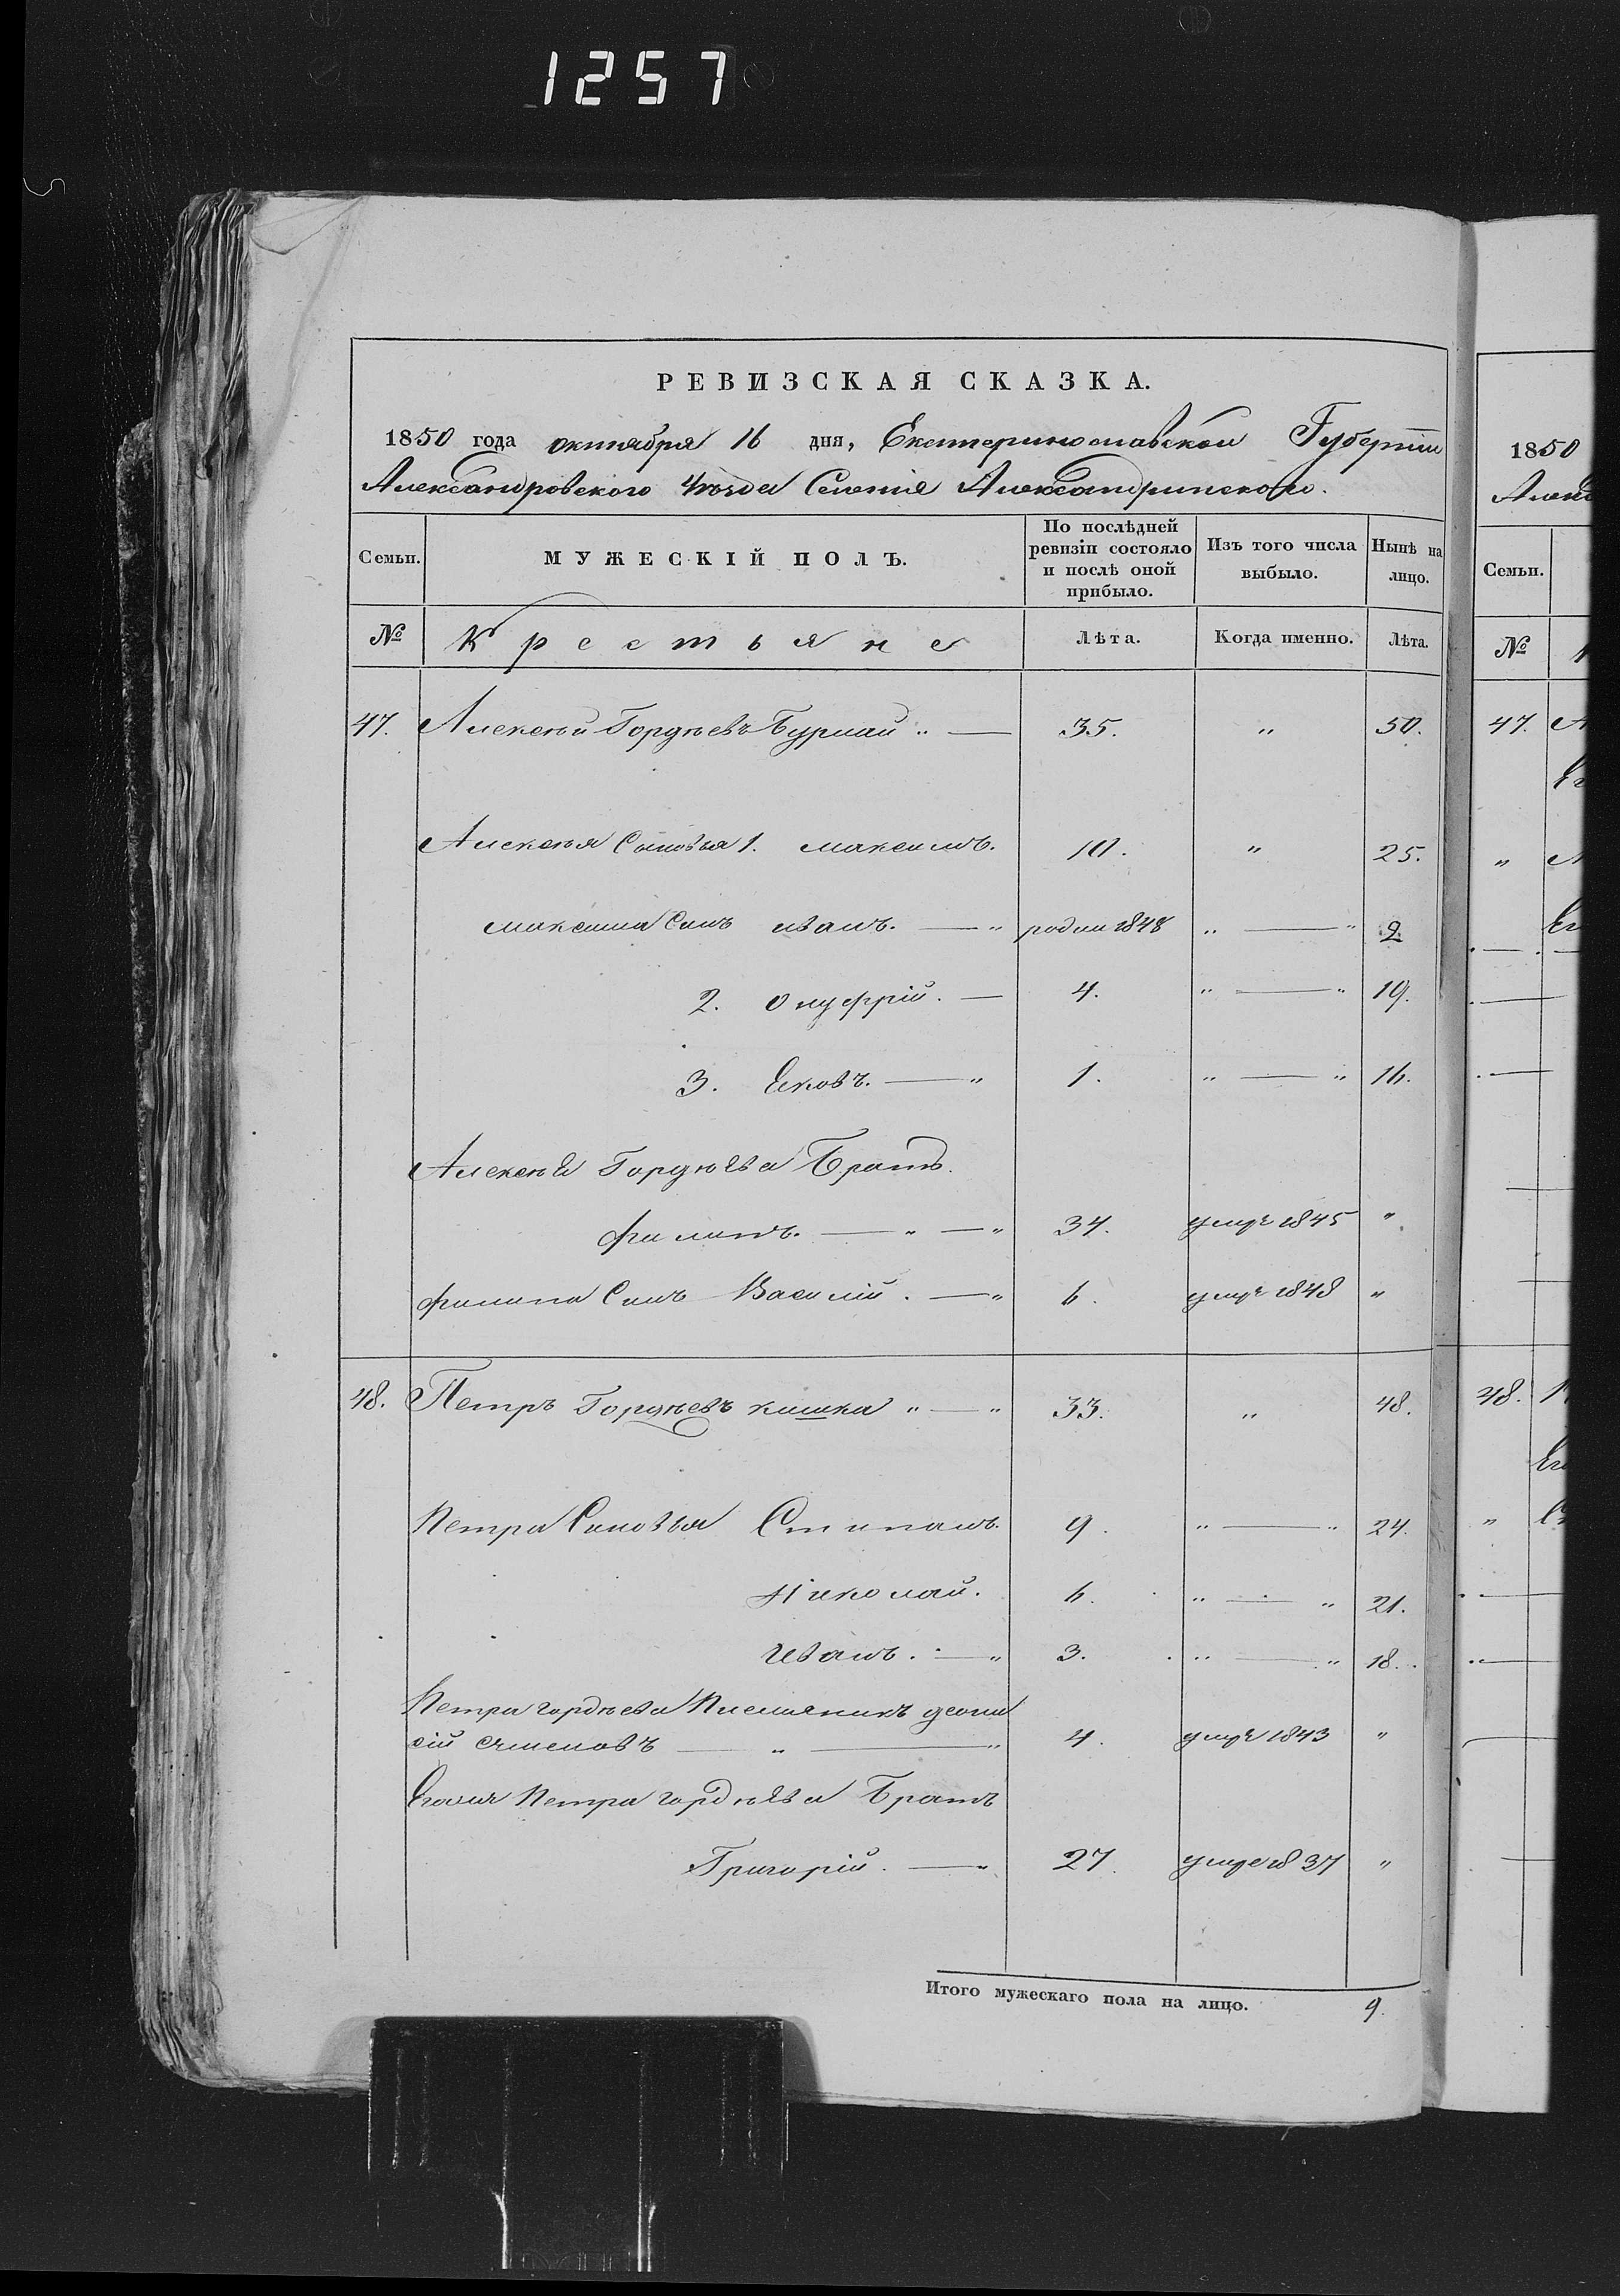 1257
РЕВИЗСКАЯ СКАЗКА.
1850 года октября 16 дня, Екатеринославской Губерніи
Александровского Уѣзда Селенія Александринского.
Семьи. МУЖЕСКІЙ ПОЛЪ. По послѣдней ревизіи состояло и послѣ оной прибыло. Изъ того числа выбыло. Нынѣ на лицо.
№ Крестьяне Лѣта. Когда именно. Лѣта.
47. Алексѣй Гордѣевъ Бурлай „ — 35. „ 50.
Алексѣя Сыновья 1. Максимъ. 10. „ 25.
Максима Сынъ Иванъ. — „ родил 1848 „ — „ 2
2. Онуфрій. — 4. „ — „ 19.
3. Яковъ. — „ 1. „ — „ 16.
Алексѣя Гордѣева Братъ.
Филипъ. — „ — „ 34. умре 1845 „
Филипа Сынъ Василій. — „ 6. умре 1848 „
48. Петръ Гордѣевъ Кишка „ — „ 33. „ 48.
Петра Сыновья Стипанъ. 9. „ — „ 24.
Николай. 6. „ — „ 21.
Иванъ. — „ 3. „ — „ 18.
Петра Гордѣева Племяникъ Деони
сій Семеновъ — „ — „ 4. умре 1843 „
Петра Гордѣева Братъ
Григорій. — „ 27. умре 1837 „
Итого мужескаго пола на лицо. 9.
1850
Семьи.
№
47.
„
48.
„